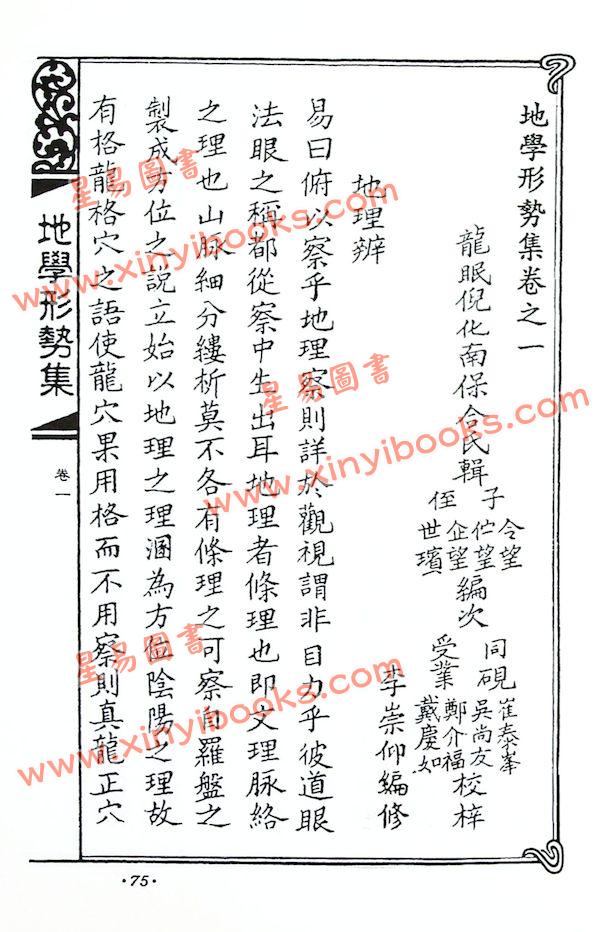 地學形勢集卷之一
龍眠倪化南保合民輯
子
令望
佇望
企望
侄
世瓆
編次
同硯
崔泰峯
吳尚友
受業
鄭介福
戴慶如
校梓
李崇仰編修
地理辨
易曰俯以察乎地理察則詳於觀視謂非目力乎彼道眼
法眼之稱都從察中生出耳地理者條理也即文理脉絡
之理也山脉細分縷析莫不各有條理之可察自羅盤之
製成方位之説立始以地理之理溷為方位陰陽之理故
有格龍格穴之語使龍穴果用格而不用察則真龍正穴
地學形勢集
卷一
·75·
星易圖書
www.xinyibooks.com
星易圖書
www.xinyibooks.com
星易圖書
www.xinyibooks.com